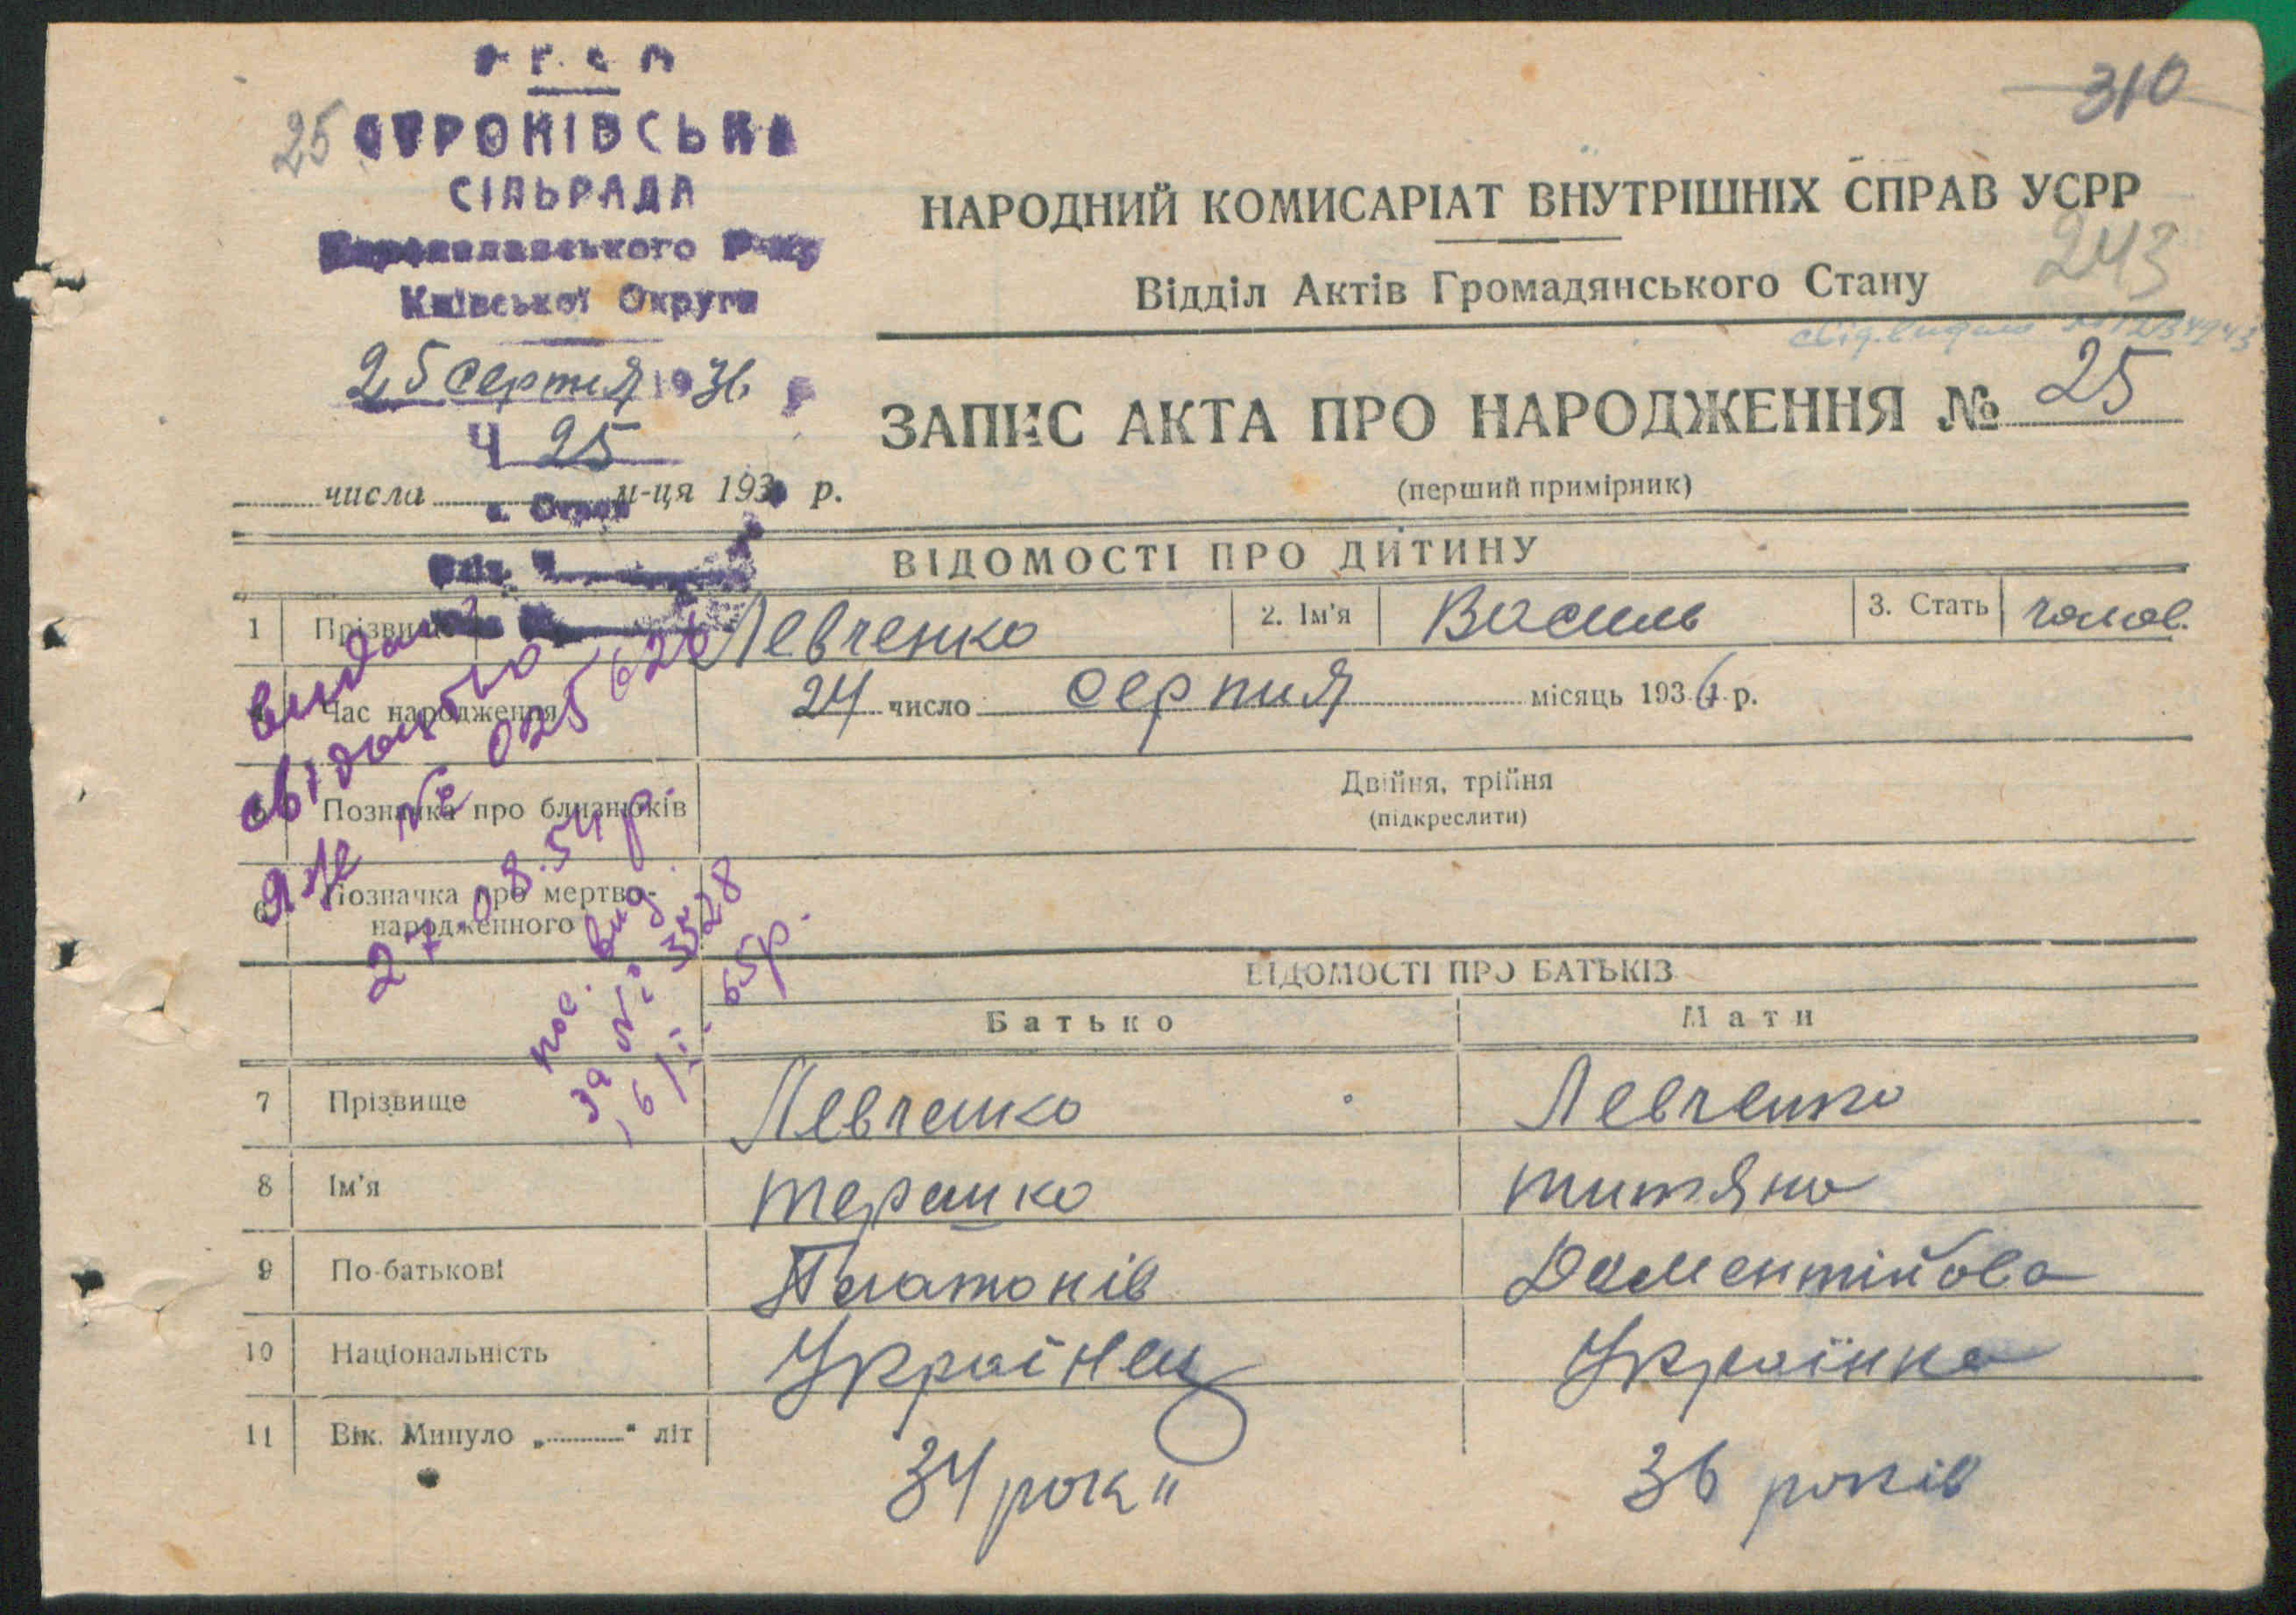 310
25 СТРОКІВСЬКА
СІЛЬРАДА
Київської Округи
25 серпня 1936
Ч 25
числа м-ця 193 р.
НАРОДНИЙ КОМИСАРІАТ ВНУТРІШНІХ СПРАВ УСРР
243
Відділ Актів Громадянського Стану
ЗАПИС АКТА ПРО НАРОДЖЕННЯ № 25
(перший примірник)
ВІДОМОСТІ ПРО ДИТИНУ
1 Прізвище Левченко 2. Ім'я Василь 3. Стать чолов.
Час народження 24 число серпня місяць 1936 р.
5 Позначка про близнюків Двійня, трійня
(підкреслити)
6 Позначка про мертво-
народженного
видано
свідоцтво
ЯЛе № 025626
27-08.54 р.
пос. вид.
за № 3528
16/II-65р.
ВІДОМОСТІ ПРО БАТЬКІВ
Батько Мати
7 Прізвище Левченко Левченко
8 Ім'я терешко титяна
9 По-батькові Платонів Доментійова
10 Національність Українец Українка
11 Вік. Минуло „ “ літ 34 роки 36 років